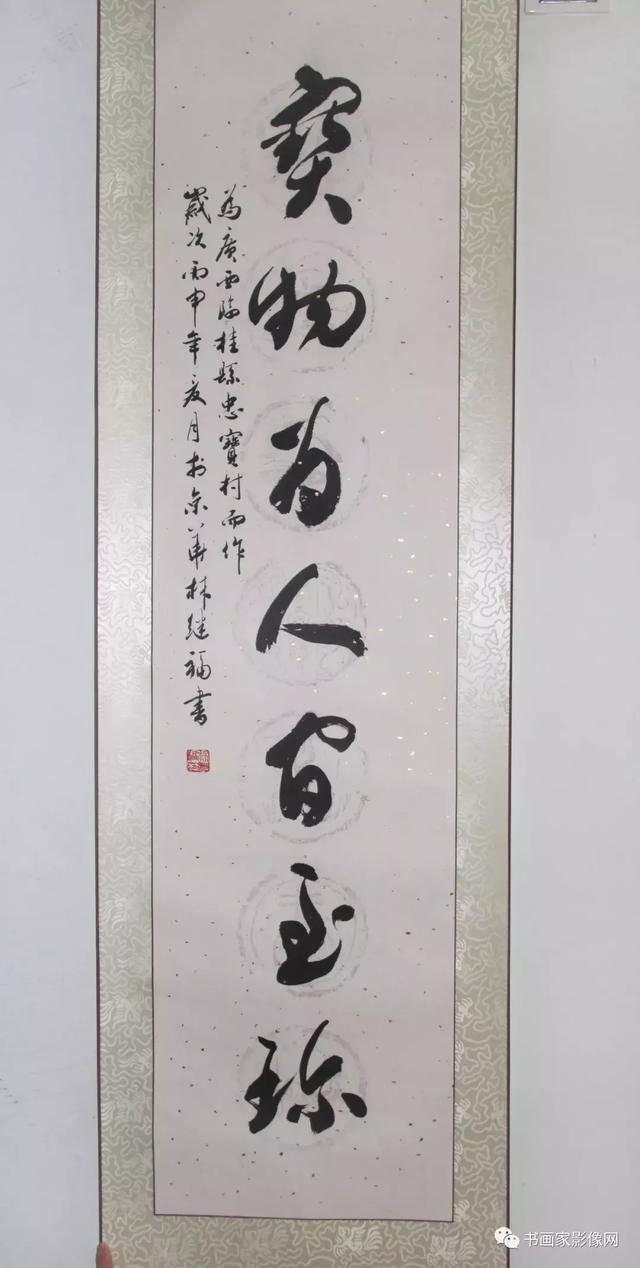 寳物为人间至珍
为廣西临桂縣忠寶村而作
歲次丙申年夏月於京華林继福書
书画家影像网